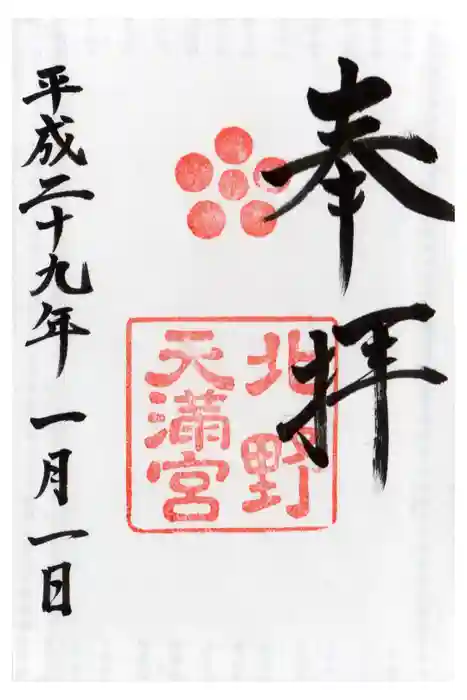 奉拝
北野
天満宮
平成二十九年一月一日